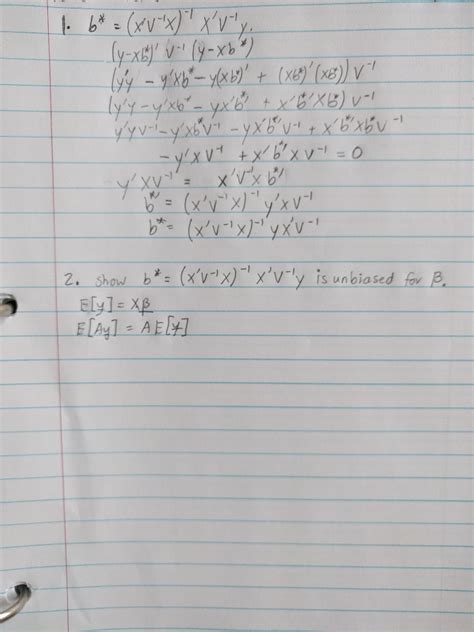 1. b* = (x'v⁻¹x)⁻¹ x'v⁻¹y.
(y-xb*)' v⁻¹ (y-xb*)
(y'y - y'xb* - y(xb*)' + (xb*)'(xb*)) v⁻¹
(y'y - y'xb* - yx'b*' + x'b*'xb*) v⁻¹
y'yv⁻¹ - y'xb*v⁻¹ - yx'b*'v⁻¹ + x'b*'xb*v⁻¹
- y'xv⁻¹ + x'b*'xv⁻¹ = 0
y'xv⁻¹ = x'v⁻¹xb*'
b*' = (x'v⁻¹x)⁻¹ y'xv⁻¹
b* = (x'v⁻¹x)⁻¹ yx'v⁻¹
2. Show b* = (x'v⁻¹x)⁻¹ x'v⁻¹y is unbiased for β.
E[y] = Xβ
E[Ay] = AE[y]